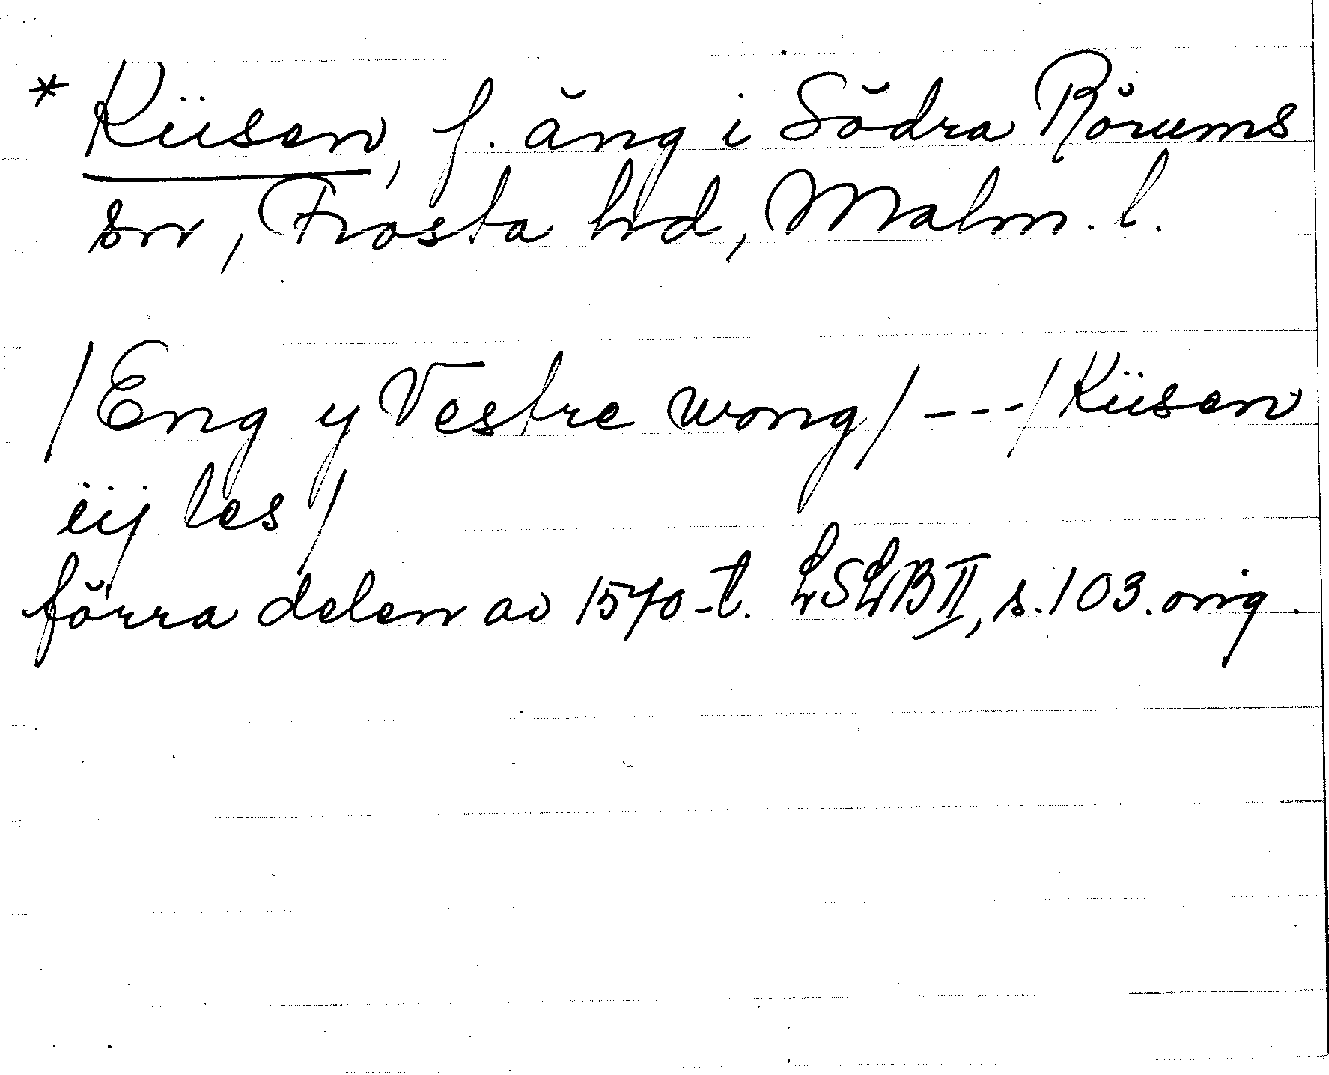 * Kiisen, f. äng i Södra Rörums
sn, Frosta hd, Malm. l.
/Eng y Vestre wong/ ---/Kiisen
iij les/
förra delen av 1570-t. LSLB II, s. 103. orig.